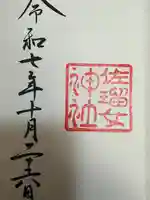 佐瑠女
神社
令和七年十月二十六日